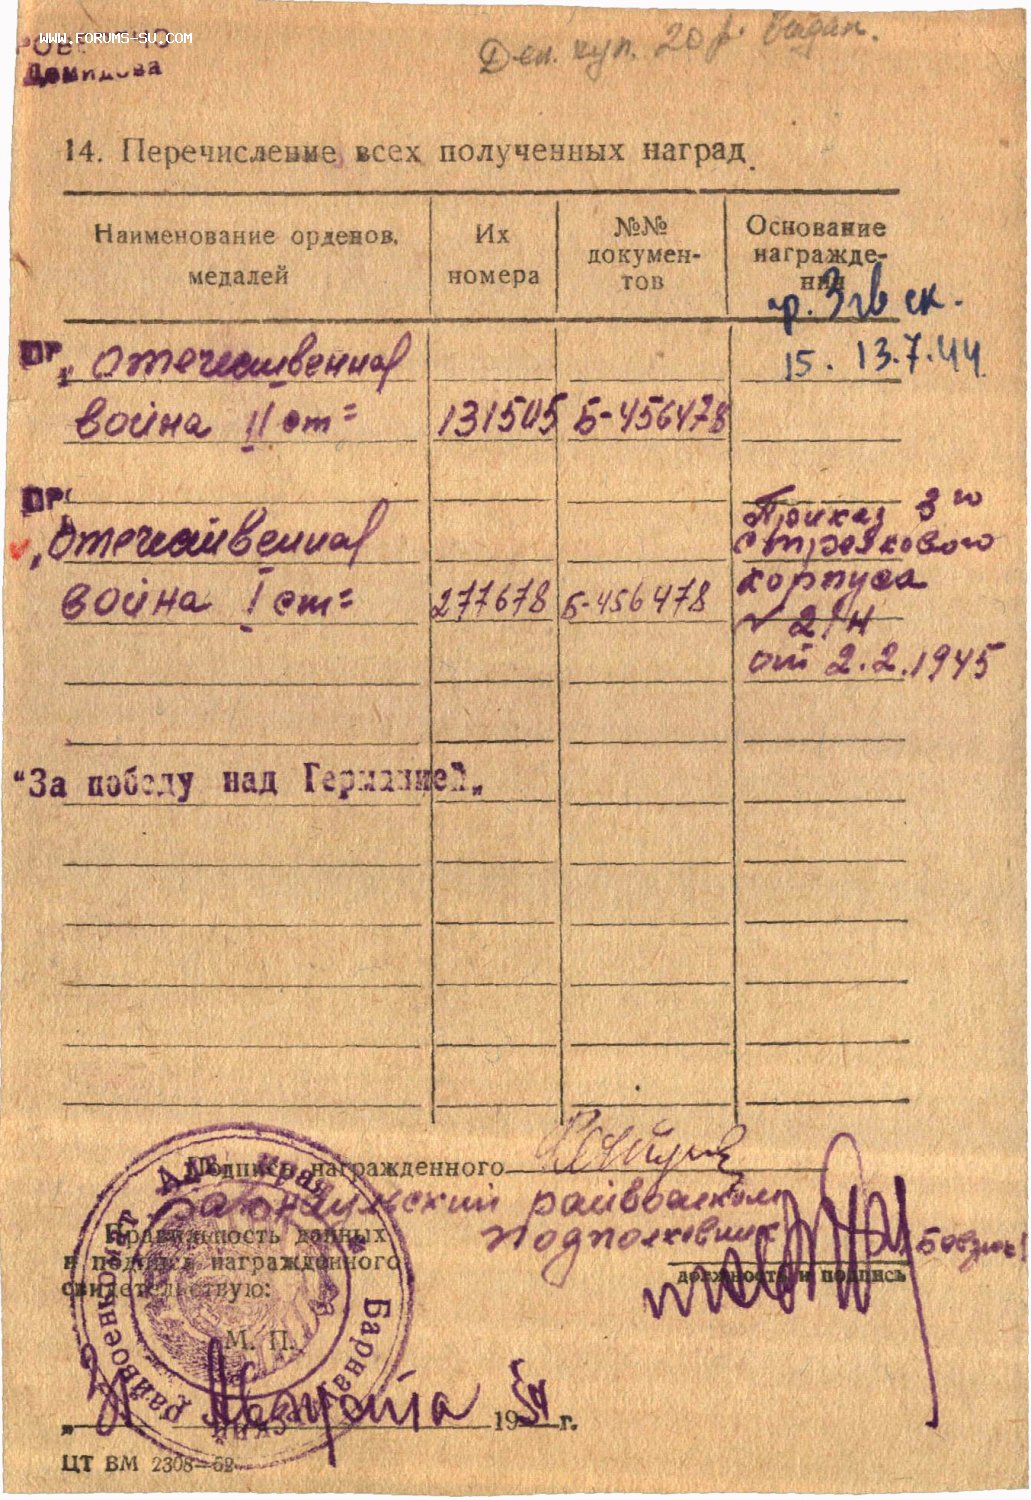 www.FORUMS-SU.com
Демидова
Ден. куп. 20 р. выдан.
14. Перечисление всех полученных наград.
Наименование орденов, медалей
Их номера
№№ документов
Основание награждения
пр. 3 гв ск.
15. 13.7.44
ПР
"Отечественная
война II ст=
131505 Б-456478
ПР
"Отечественная
война I ст=
277678 Б-456478
Приказ 3го
стрелкового
корпуса
№ 2/н
от 2.2.1945
"За победу над Германией"
Подпись награжденного
Барнаульский райвоенком
Подполковник
Правильность данных
и подписи награжденного
свидетельствую:
должность и подпись
М. П.
Алт. края Барнаульский райвоенкомат
Августа 1954 г.
ЦТ ВМ 2308—52